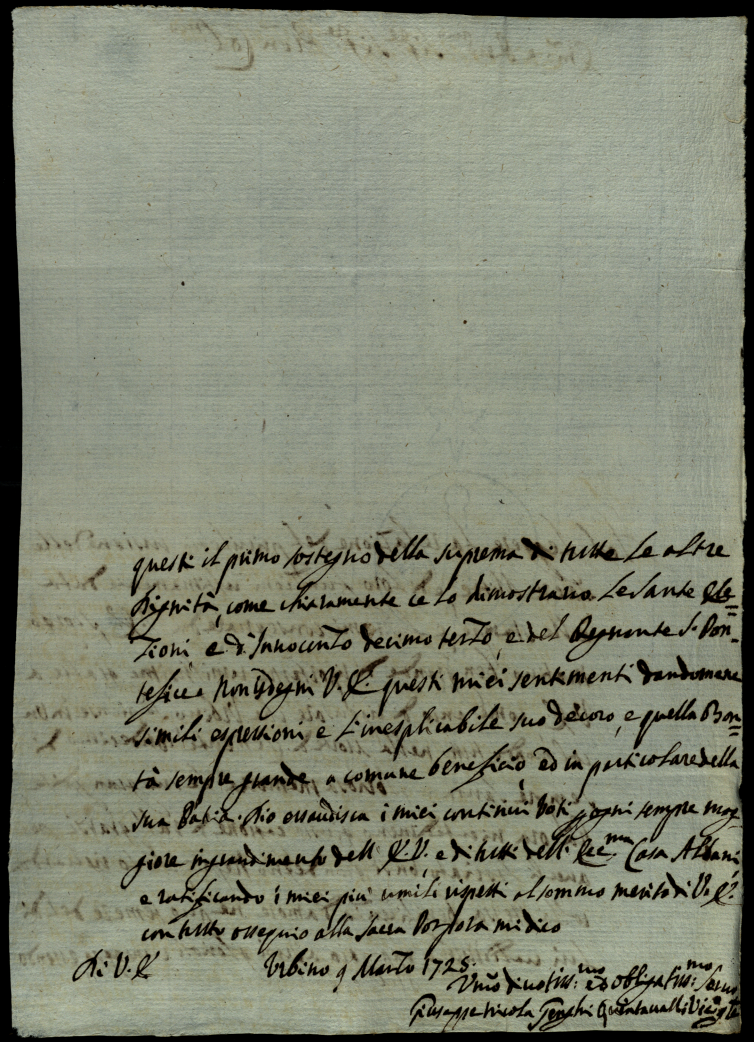 questi il primo sostegno della suprema di tutte le altre
dignità, come chiaramente ce lo dimostrano le sante Ele=
zioni, e d'Innocenzo decimo terzo, e del Regnante S. Pon=
tefice. Non sdegni V. E. questi miei sentimenti dandomene
simili espressioni e l'inesplicabile suo decoro, e quella Bon=
tà sempre grande a comune beneficio, ed in particolare della
sua Patria. Dio essaudisca i miei continui Voti p ogni sempre mag=
giore ingrandimento dell' E. V. e di tutti dell' Ecc.ma Casa Albani,
e ratificando i miei più umili rispetti al sommo merito di V. E.
con tutto ossequio alla Sacra Porpora mi dico
Di V. E. Urbino 9 Marzo 1725.
Umo divotiss:mo ed obligatiss:mo Servo
Giuseppe Nicola Quintavalli